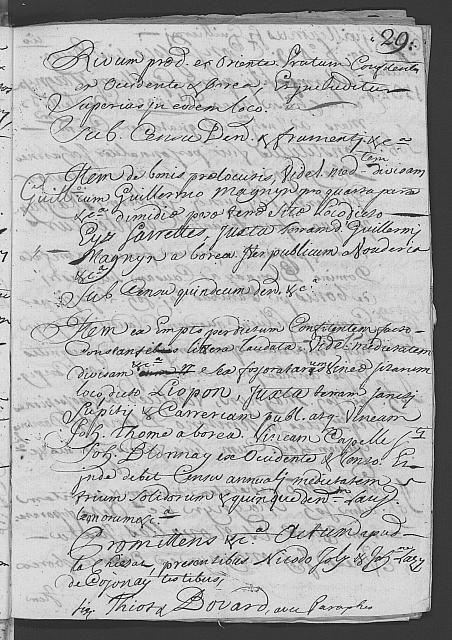 29.
Rivum præd. ex Oriente. Pratum Confitentis
ex Occidente & borea;
Superius in eodem loco.
Sub. Censu Den. & frumenti &c.a
Item de bonis prælocutis, videl. med.tem divisam
Guill.um Guillermo Magnyn pro quarta parte
&c.a dimidiæ poss. terræ sitæ loco dicto
Eyz Garrettes, Juxta terram Guillermi
Magnyn a borea. Iter publicum
&c.a
Sub Censu quindecim den. &c.
Item ex Empto per dictum Confitentem facto
Constante littera laudata, videl. medietatem
divisam &c.a vineæ sitarum
loco dicto Liopon, Juxta terram sancti
Sulpitij & Carreriam publ. atq. Vineam
Joh. Thome a borea. Vineam Capellæ S.ti
Joh. Blonnay ex Occidente &
inde debet Censu annuali medietatem
trium solidorum & quinque den. Laus.
bonorum &c.a
Promittens &c.a Actum apud
la Chiesaz, presentibus Nicodo Joly & Joh.
de Cojonay testibus,
sig. Thiost & Bovard, avec Paraphes